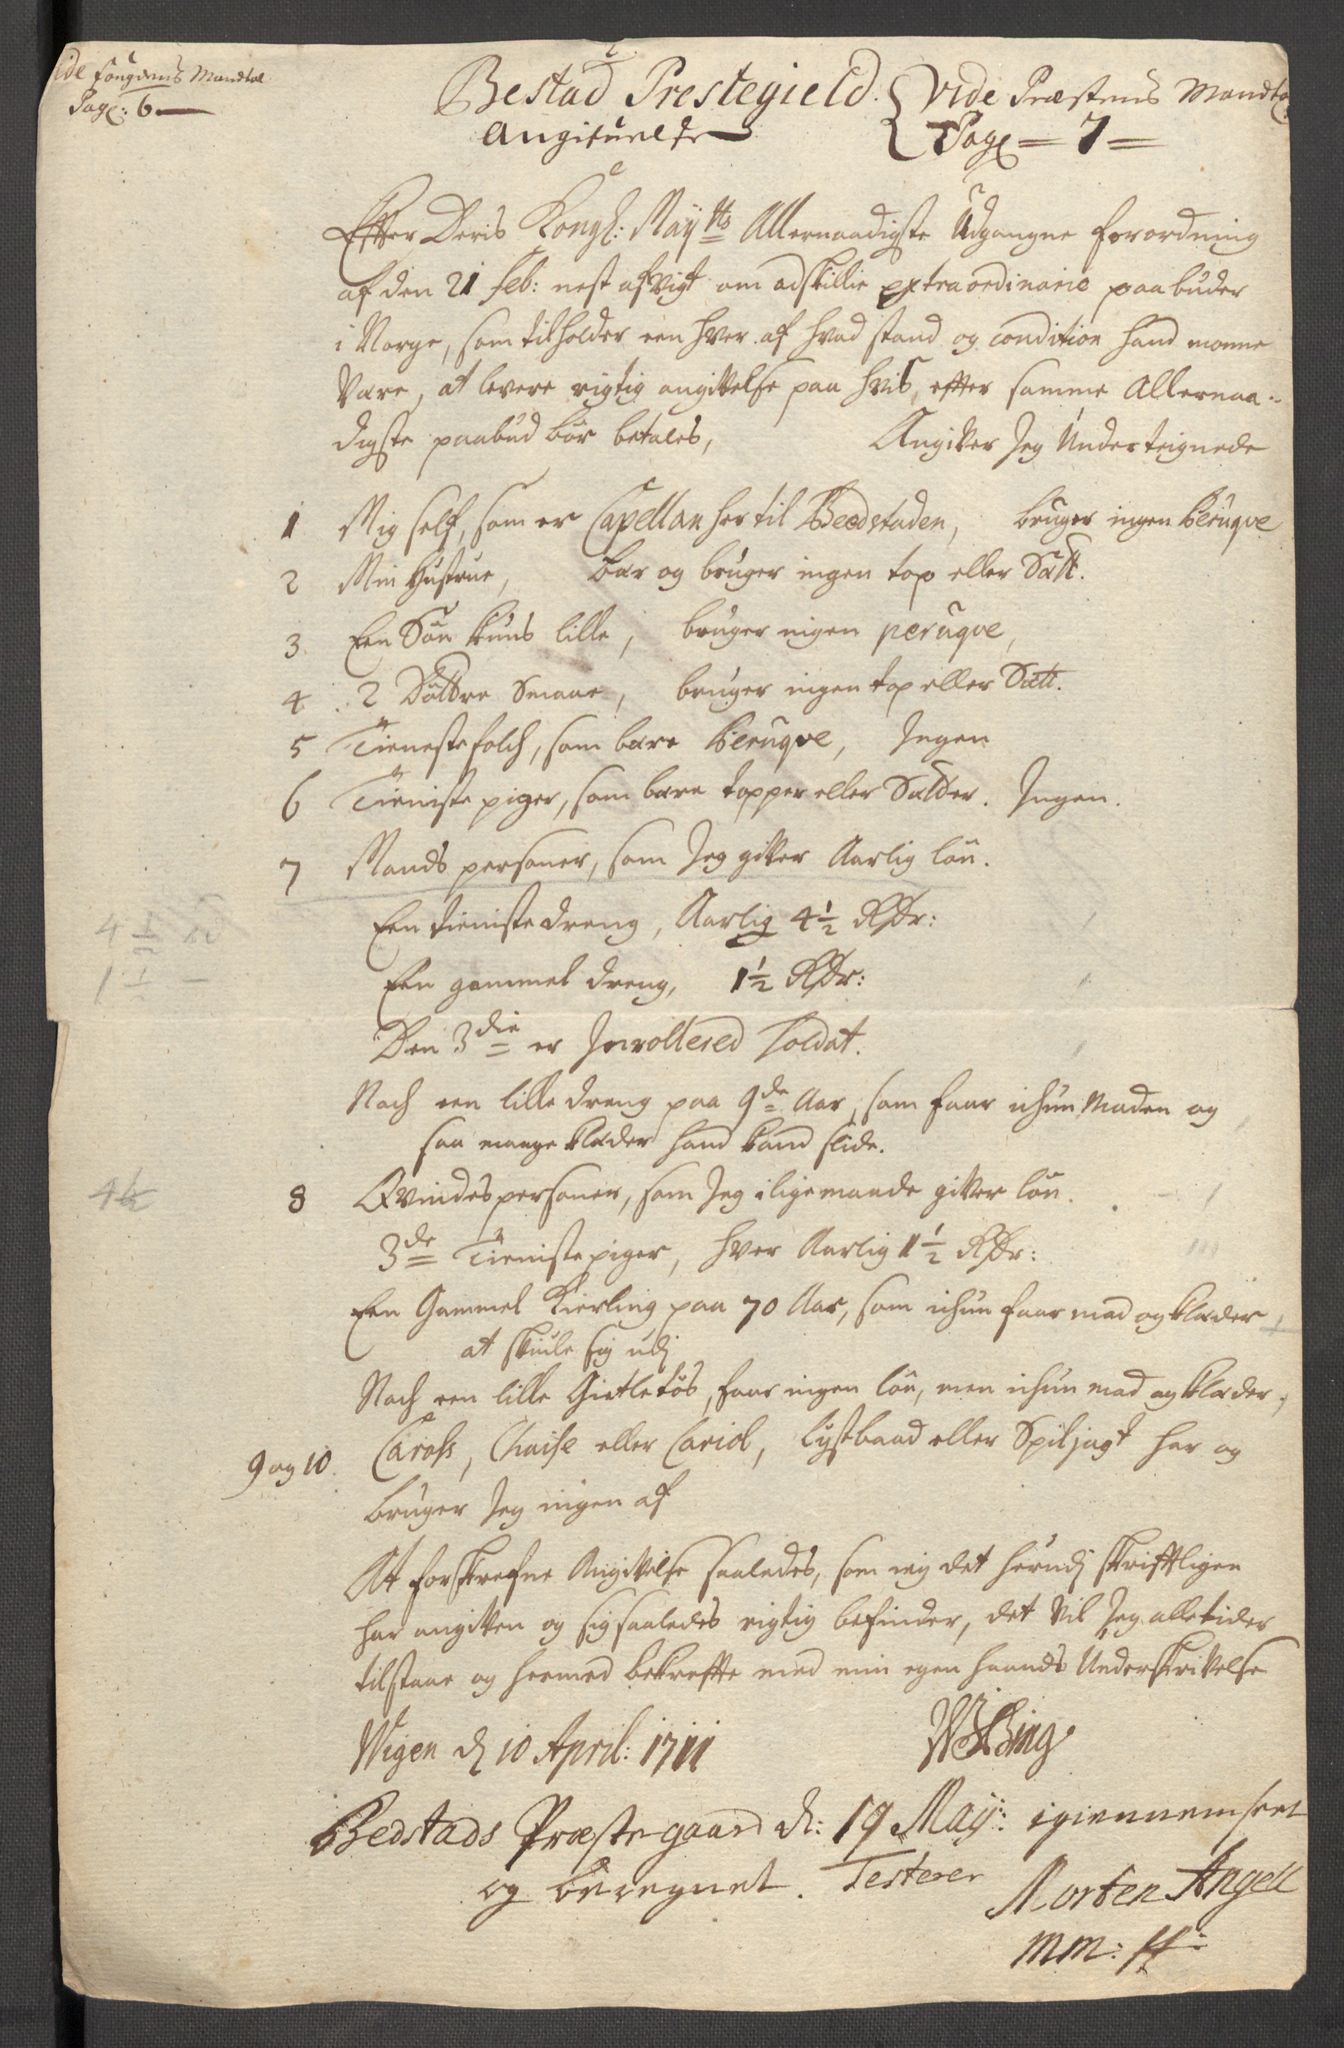 Vide Fougdens Mandtal
Pag: 6
Bestad Prestegield
Angifuelse
Vide Præstens Mandtal
Pag = 7 =
Effter Deris Kongl: Mayts Allernaadigste Udgangne forordning
af den 21 Feb: nest afvigt om adskillie extraordinarie paabuder
i Norge, som tilholder een hver af hvad stand og condition hand monne
være, at levere rigtig angivelse paa hvis, effter samme Allernaa-
digste paabud bør betales, Angiver Jeg Underteignede
1 Mig self, som er Capellan her til Beedstaden, bruger ingen Peruqve
2 Min Hustrue, bær og bruger ingen top eller Sætt.
3 Een Søn kuns lille, bruger ingen peruqve,
4 2 Døttre smaae, bruger ingen top eller Sætt.
5 Tienestefolch, som bære Peruqve, Ingen
6 Tieniste piger, som bære topper eller Sætter. Ingen.
7 Mands personer, som Jeg giver Aarlig løn.
Een tienistedreng, Aarlig 4½ Rdr:
4 ½
Een gammel dreng, 1½ Rdr:
1 ½ —
Den 3die er Inrollered Soldat.
Noch een lille dreng paa 9de Aar, som faar ichun Maden og
saa mange klæder hand kand slide.
8 Qvindespersoner, som Jeg iligemaade giver løn.
4½
3de Tienistepiger, hver Aarlig 1½ Rdr:
Een Gammel Kierling paa 70 Aar, som ichun faar mad og klæder
at skiule sig udj
Noch een lille Gietletøs, faar ingen løn, men ichun mad og klæder,
9 og 10. Caross, Chaise eller Cariol, lystbaad eller Spiljagt har og
bruger Jeg ingen af
At forskrefne Angivelse saaledes, som ieg det herudj skrifftligen
har angiven og sig saaledes rigtig befinder, det vil Jeg alletider
tilstaae og hermed bekreffte med min egen haands Underskrivelse
Wigen d 10 April: 1711
Bing
Bedstads Præstegaard d: 19 May: igiennemseet
og beregnet. Testerer
Morten Angell
mm: pp: